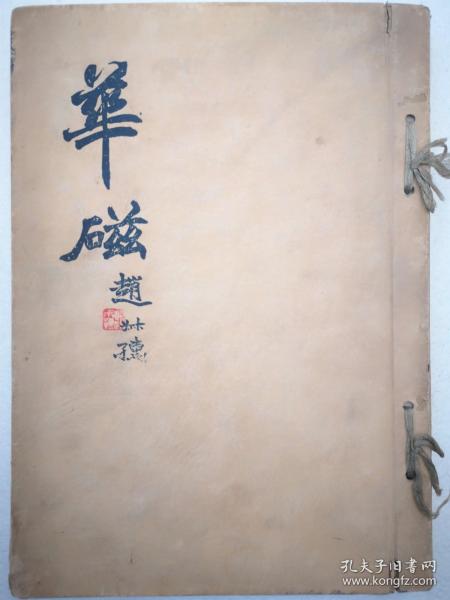 華磁
趙叔孺
孔夫子旧书网
www.kongfz.com